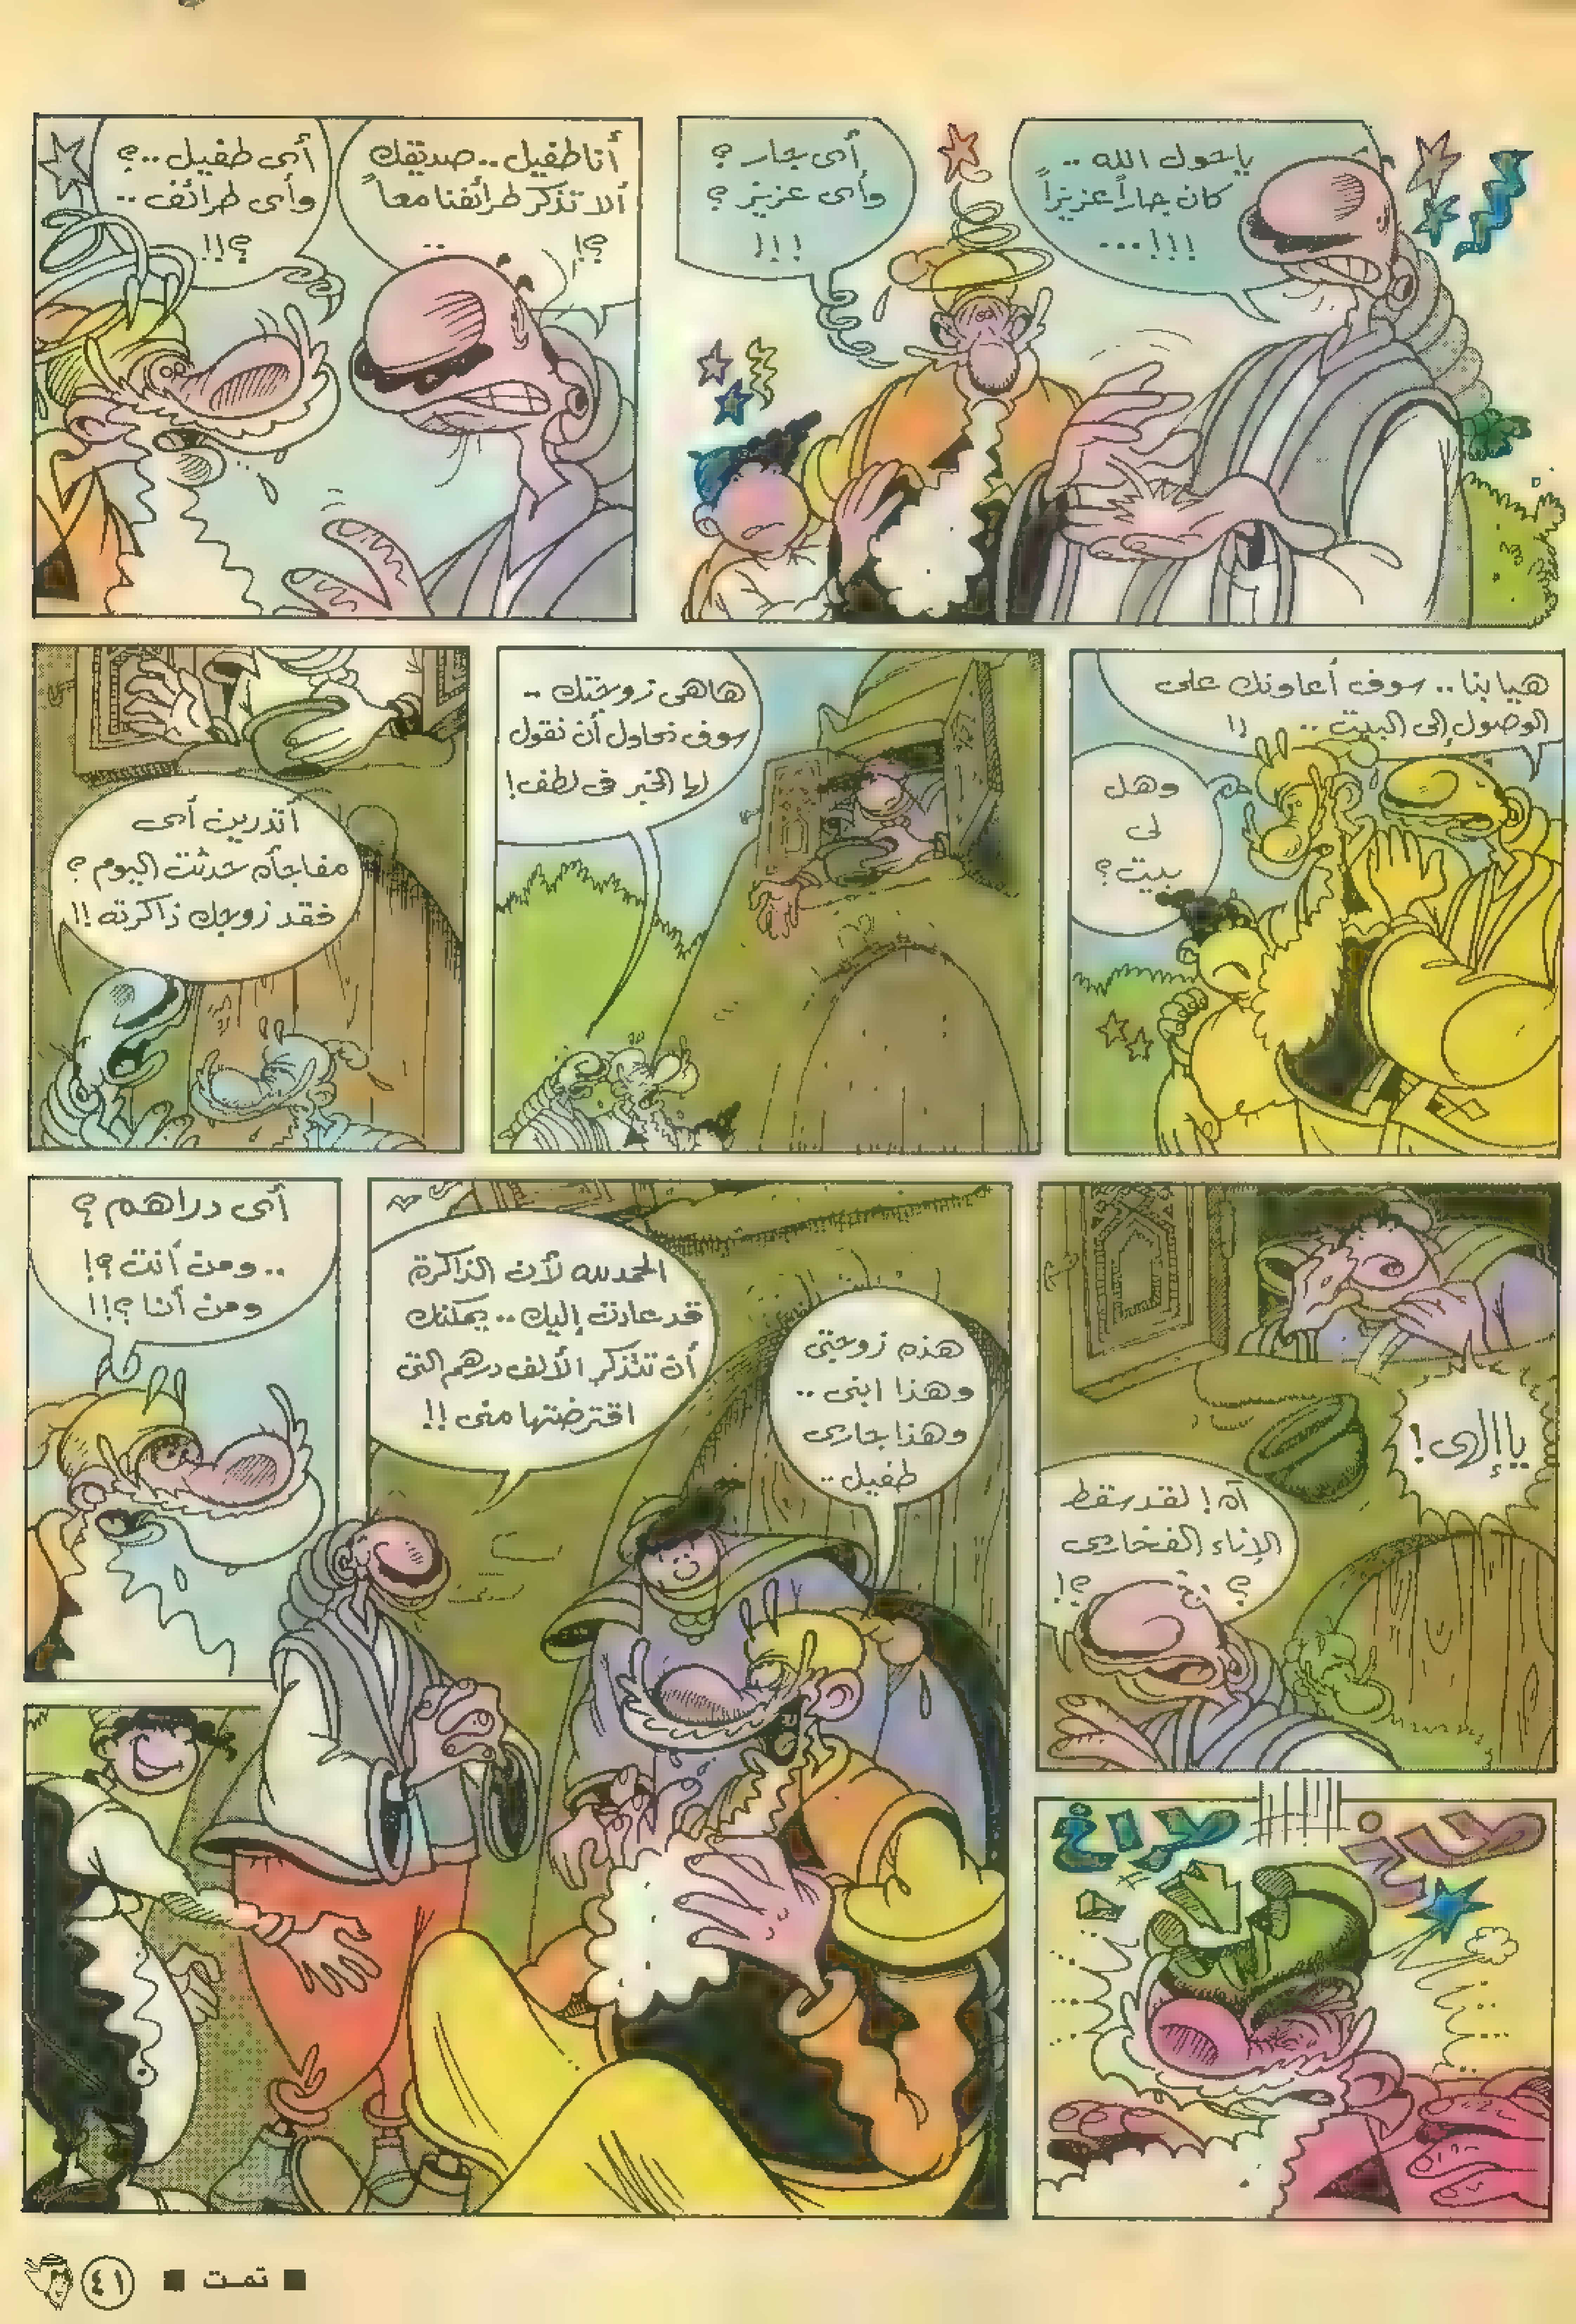 يا حول الله ..
كان جاراً عزيزاً
...!!!
أى جار ؟
وأى عزيز ؟
!!!
أنا طفيل .. صديقك
ألا تذكر طرائفنا معاً
؟!
أى طفيل ..؟
وأى طرائف ..
؟!!
هيا بنا .. سوف أعاونك على
الوصول إلى البيت .. !!
وهل
لى
بيت ؟
هاهى زوجتك ..
سوف نحاول أن نقول
لها الخبر فى لطف !
أتدرين أى
مفاجأه حدثت اليوم ؟
فقد زوجك ذاكرته !!
يا إلهى !
آه ! لقد سقط
الإناء الفخارى
؟ ؟!
طاخ
طراخ
هذه زوجتى
وهذا ابنى ..
وهذا جارى
طفيل ..
الحمد لله لأن الذاكرة
قد عادت إليك .. يمكنك
أن تتذكر الألف درهم التى
اقترضتها منى !!
أى دراهم ؟
.. ومن أنت ؟!
ومن أنا ؟!!
■ تمت ■
٤١